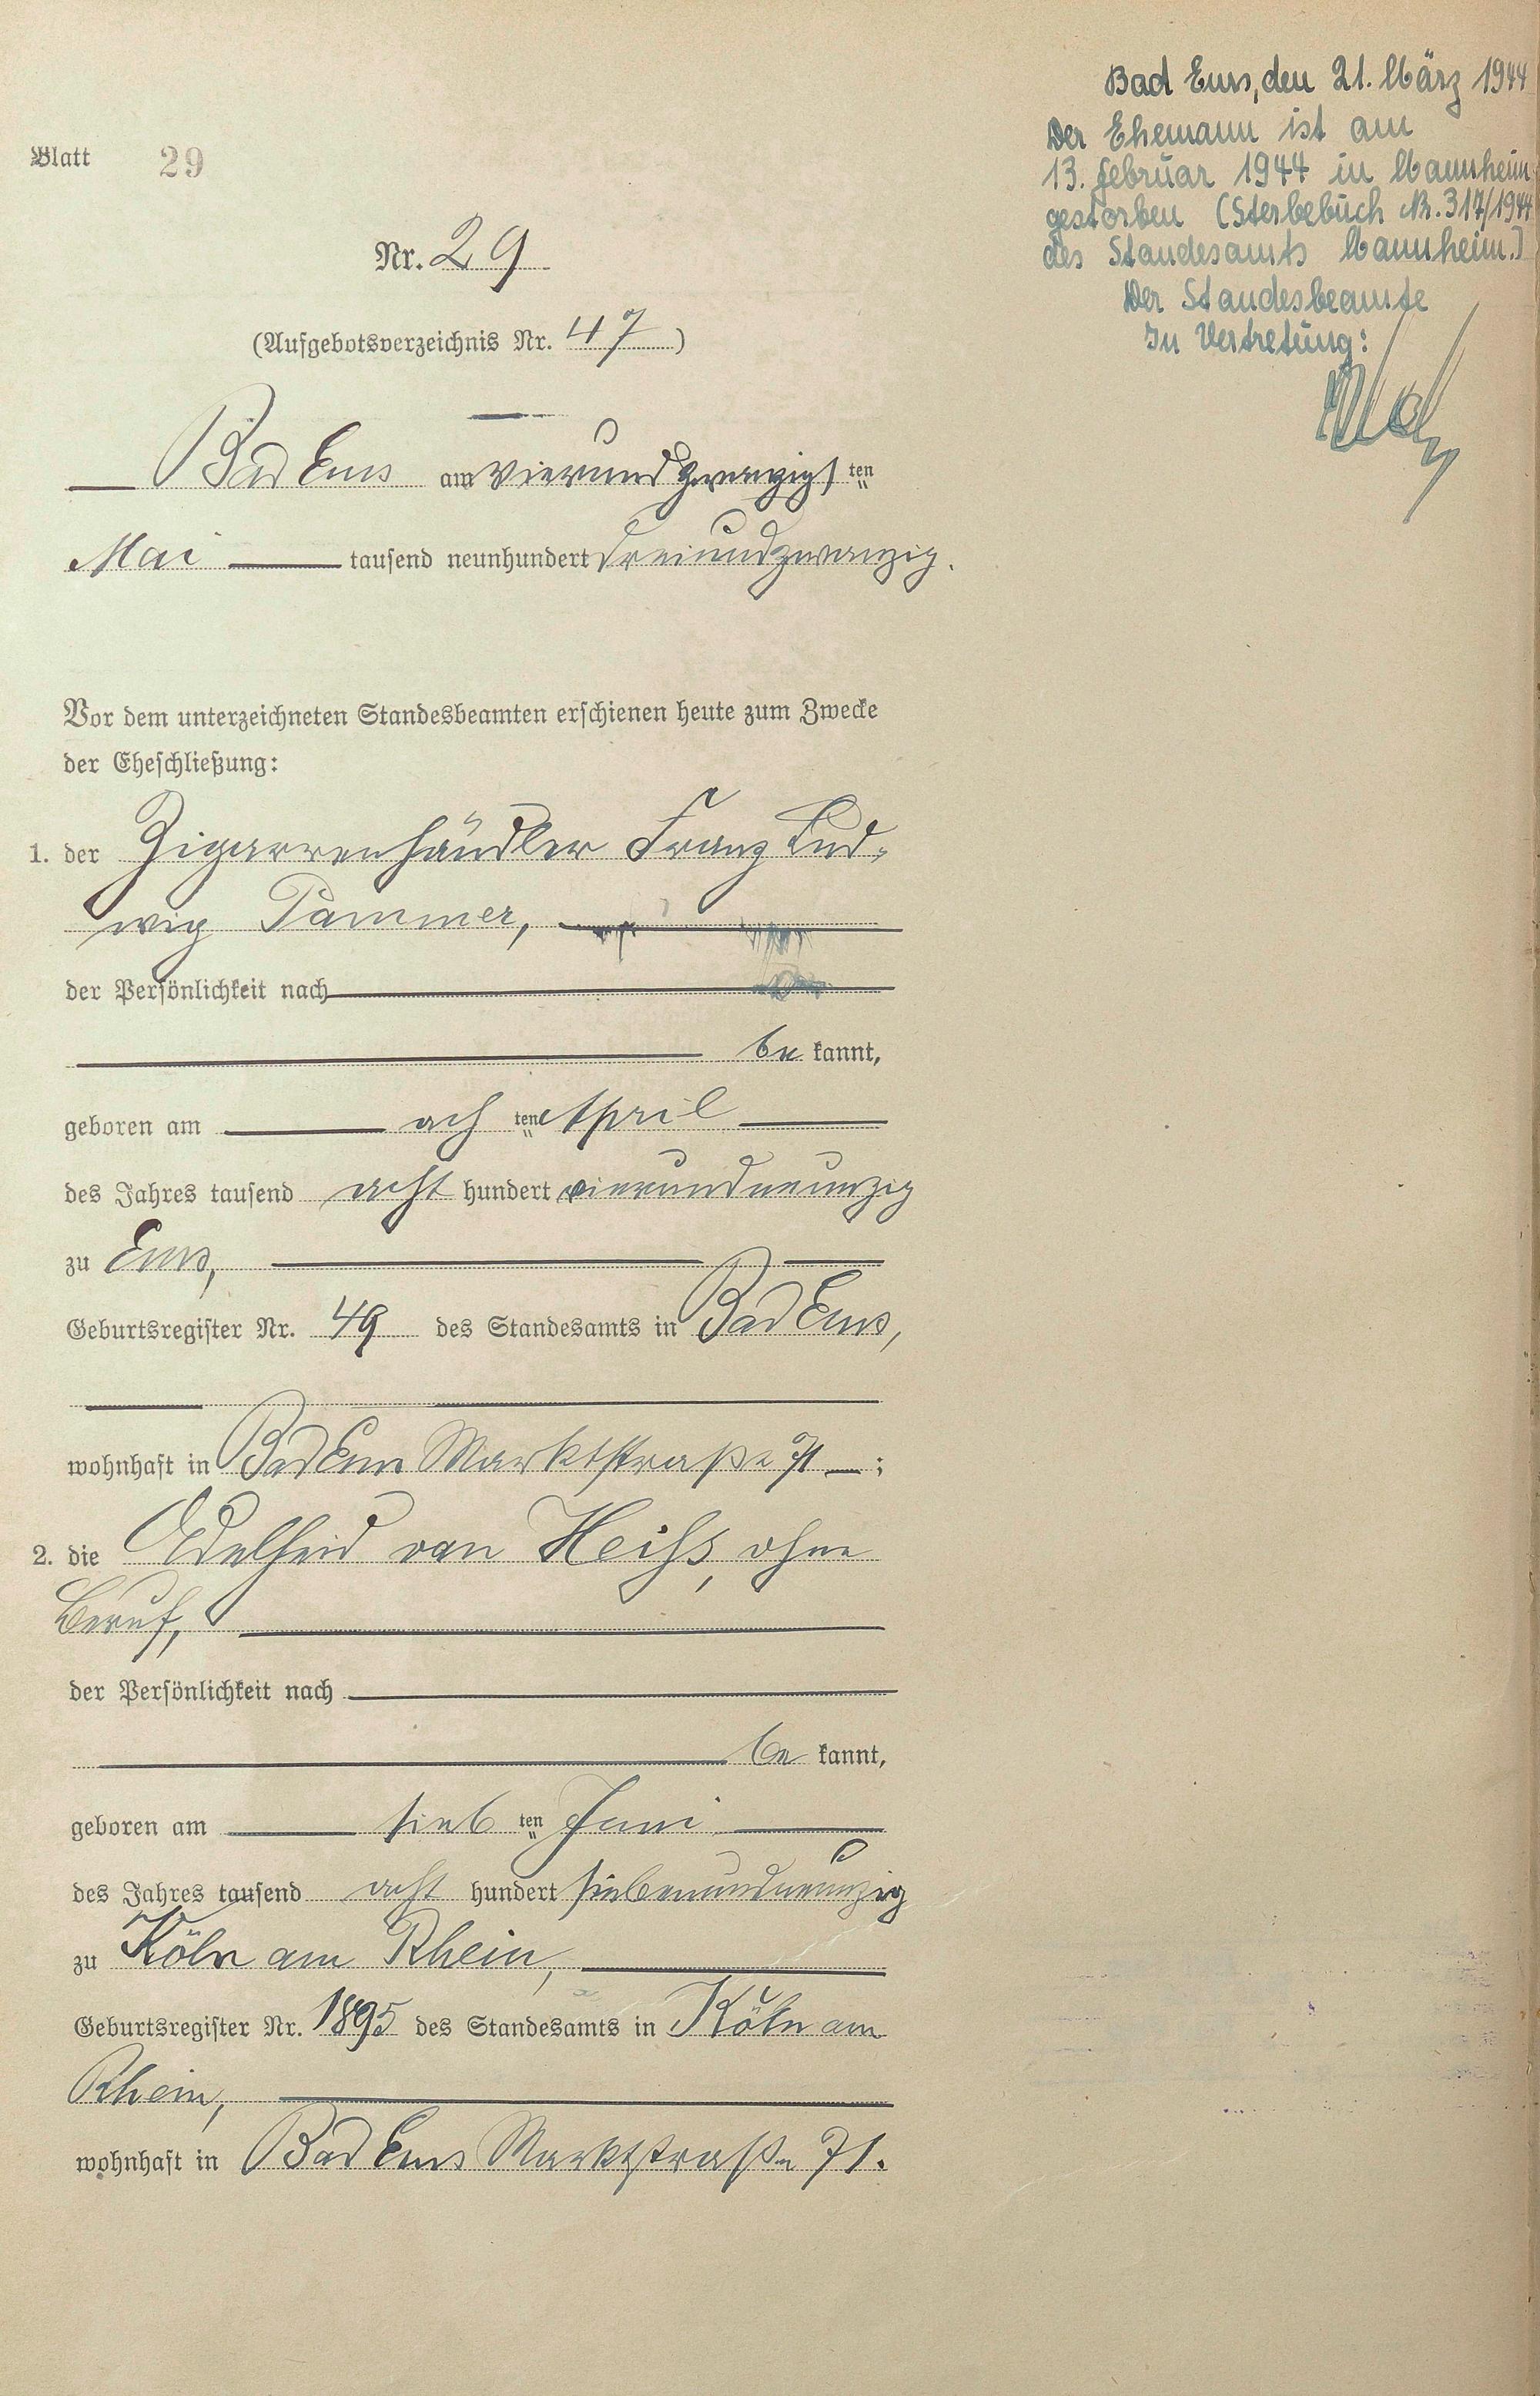 Blatt 29
Nr. 29
(Aufgebotsverzeichnis Nr. 47)
Bad Ems am vierundzwanzigsten
Mai tausend neunhundert dreiundzwanzig.
Vor dem unterzeichneten Standesbeamten erschienen heute zum Zwecke
der Eheschließung:
1. der Zigarrenhändler Franz Lud-
wig Pammer,
der Persönlichkeit nach
be kannt,
geboren am achten April
des Jahres tausend acht hundert vierundneunzig
zu Ems,
Geburtsregister Nr. 49 des Standesamts in Bad Ems,
wohnhaft in Bad Ems Marktstraße 71;
2. die Adelheid van Heiß, ohne
Beruf,
der Persönlichkeit nach
be kannt,
geboren am siebten Juni
des Jahres tausend acht hundert siebenundneunzig
zu Köln am Rhein,
Geburtsregister Nr. 1895 des Standesamts in Köln am
Rhein,
wohnhaft in Bad Ems Marktstraße 71.
Bad Ems, den 21. März 1944
Der Ehemann ist am
13. Februar 1944 in Mannheim
gestorben (Sterbebuch Nr. 317/1944
des Standesamts Mannheim.)
Der Standesbeamte
In Vertretung: